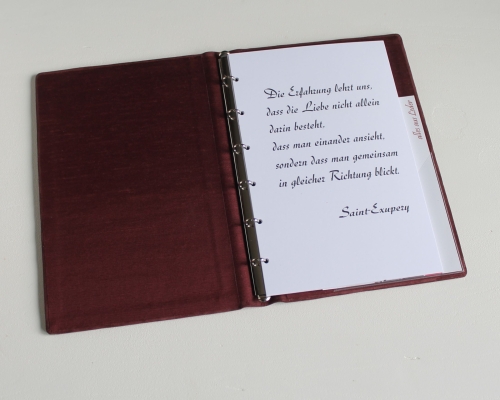 Die Erfahrung lehrt uns,
dass die Liebe nicht allein
darin besteht,
dass man einander ansieht,
sondern dass man gemeinsam
in gleicher Richtung blickt.
Saint-Exupery